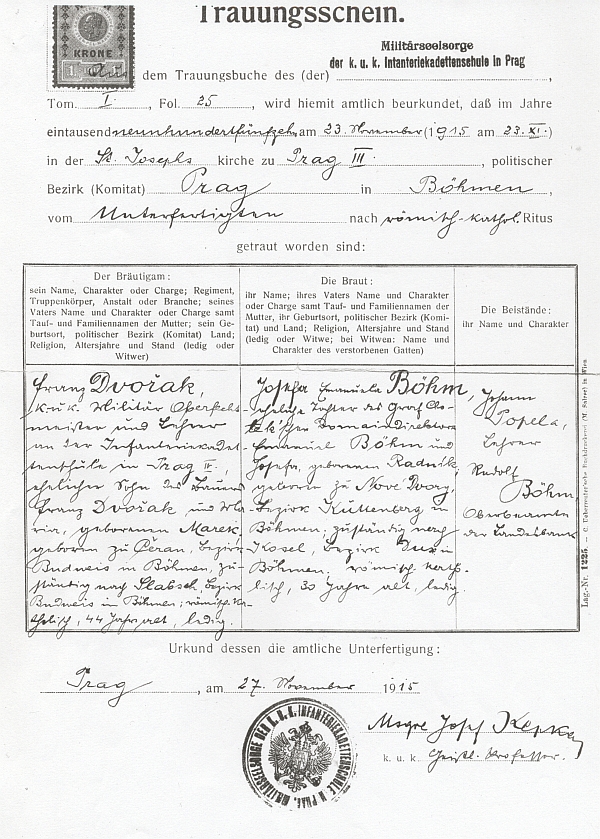 Trauungsschein.
KRONE
1 1
Militärseelsorge
der k. u. k. Infanteriekadettenschule in Prag
Aus dem Trauungsbuche des (der)
Tom. I. , Fol. 25 , wird hiemit amtlich beurkundet, daß im Jahre
eintausend neunhundertfünfzehn am 23. November (1915 am 23. XI.)
in der St. Josephs kirche zu Prag III. , politischer
Bezirk (Komitat) Prag in Böhmen ,
vom Unterfertigten nach römisch-kathol. Ritus
getraut worden sind:
Der Bräutigam:
sein Name, Charakter oder Charge; Regiment,
Truppenkörper, Anstalt oder Branche; seines
Vaters Name und Charakter oder Charge samt
Tauf- und Familiennamen der Mutter; sein Ge-
burtsort, politischer Bezirk (Komitat) Land;
Religion, Altersjahre und Stand (ledig oder
Witwer)
Die Braut:
ihr Name; ihres Vaters Name und Charakter
oder Charge samt Tauf- und Familiennamen der
Mutter, ihr Geburtsort, politischer Bezirk (Komi-
tat) und Land; Religion, Altersjahre und Stand
(ledig oder Witwe; bei Witwen: Name und
Charakter des verstorbenen Gatten)
Die Beistände:
ihr Name und Charakter
Franz Dvořák,
k.u.k. Militär
meister und Lehrer
an der Infanteriekadet-
tenschule in Prag IV.,
ehelicher Sohn des Bauers
Franz Dvořák und Ma-
ria, geborenen Marek,
geboren zu Čeran, Bezirk
Budweis in Böhmen, zu-
ständig nach Slabsch, Bezirk
Budweis in Böhmen; römisch-ka-
tholisch, 44 Jahre alt, ledig.
Josefa Emanuela Böhm,
eheliche Tochter des Graf
Domänendirektors
Emanuel Böhm und
Josefa, geborenen Radnik,
geboren zu Nové Dvory,
Bezirk Kuttenberg in
Böhmen, zuständig nach
Kosel, Bezirk Dux in
Böhmen, römisch-katho-
lisch, 30 Jahre alt, ledig.
Johann
Popela,
Lehrer
Rudolf
Böhm,
Oberbeamte
der Landesbank
Urkund dessen die amtliche Unterfertigung:
Prag , am 27. November 1915
MILITÄRSEELSORGE DER K.U.K. INFANTERIEKADETTENSCHULE IN PRAG
Josef
k. u. k. Geistl. Professor.
Lag.-Nr. 1225. — C. Ueberreutersche Buchdruckerei (M. Salzer) in Wien